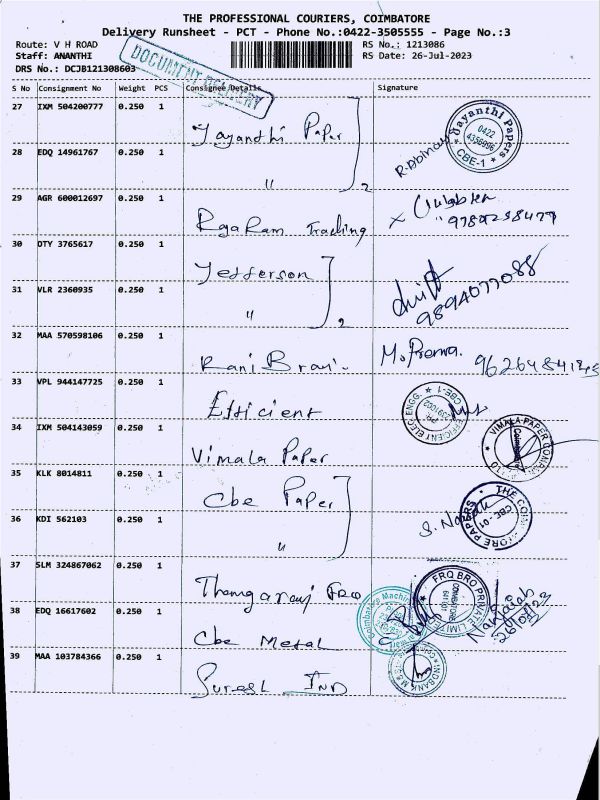 THE PROFESSIONAL COURIERS, COIMBATORE
Delivery Runsheet - PCT - Phone No.:0422-3505555 - Page No.:3
Route: V H ROAD RS No.: 1213086
Staff: ANANTHI RS Date: 26-Jul-2023
DRS No.: DCJB121308603
DOCUMENT DELIVERY
S No Consignment No Weight PCS Consignee Details Signature
27 IXM 504200777 0.250 1 Jayanthi Paper
Jayanthi Papers 0422 4356996 CBE-1
28 EDQ 14961767 0.250 1 " 2
29 AGR 600012697 0.250 1 RajaRam Trading
30 DTY 3765617 0.250 1 Jefferson
9894077088
31 VLR 2360935 0.250 1 " 2
32 MAA 570598106 0.250 1 Rani M. Prema.
33 VPL 944147725 0.250 1 Efficient
EFFICIENT ELEC ENGG. CBE-1
34 IXM 504143059 0.250 1 Vimala Paper
VIMALA PAPER COMPANY
35 KLK 8014811 0.250 1 Cbe Paper
THE COIMBATORE PAPERS CBE-01
36 KDI 562103 0.250 1 "
37 SLM 324867062 0.250 1
FRQ BRO PRIVATE LIMITED
26/07/23
38 EDQ 16617602 0.250 1 Cbe Metal
39 MAA 103784366 0.250 1 Suresh IND